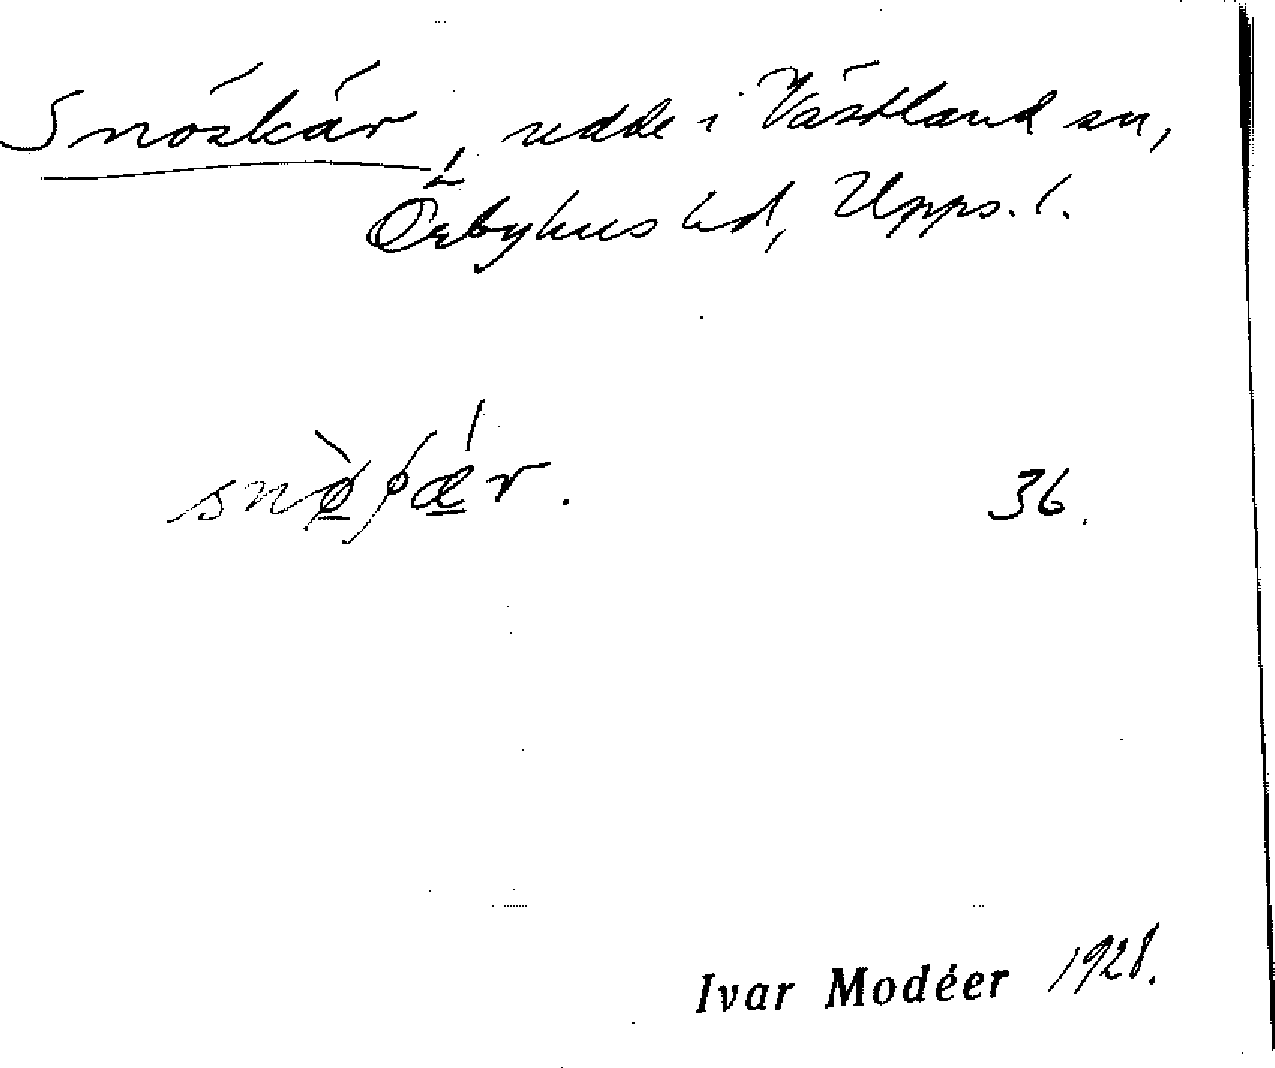 Snöskär, udde i Västland sn,
Örbyhus hd, Upps. l.
36.
Ivar Modéer 1928.